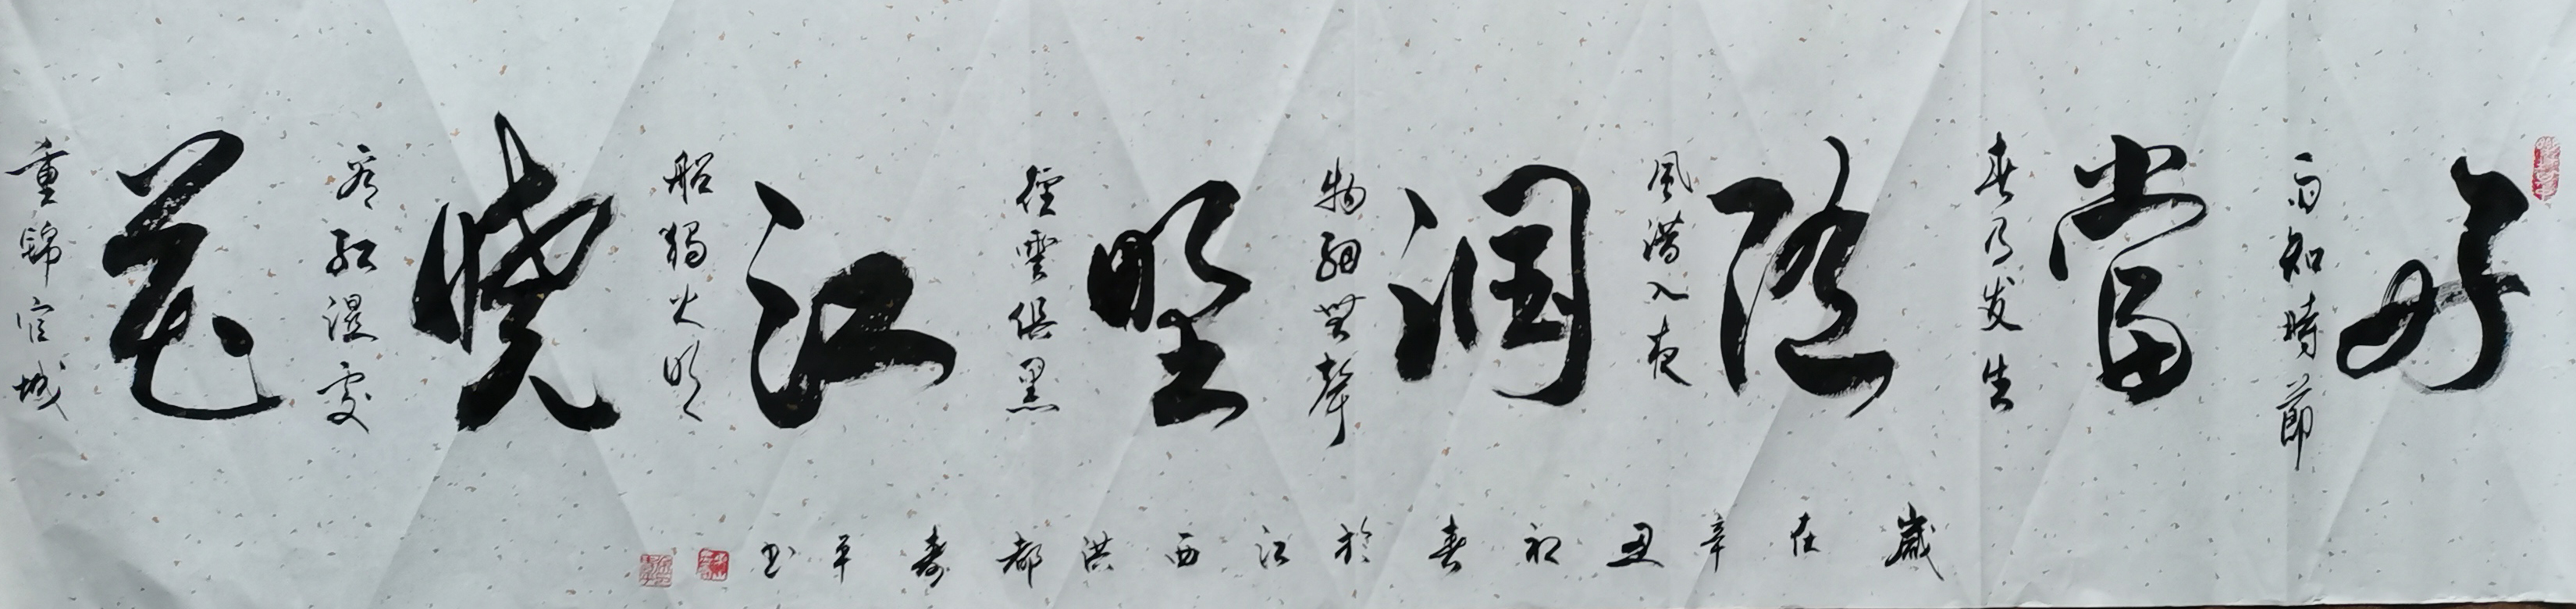 好
雨知時節
當
春乃发生
随
风潜入夜
润
物細無聲
野
徑雲俱黑
江
船獨火明
曉
看红濕處
花
重錦官城
歲在辛丑初春於江西洪都壽平书